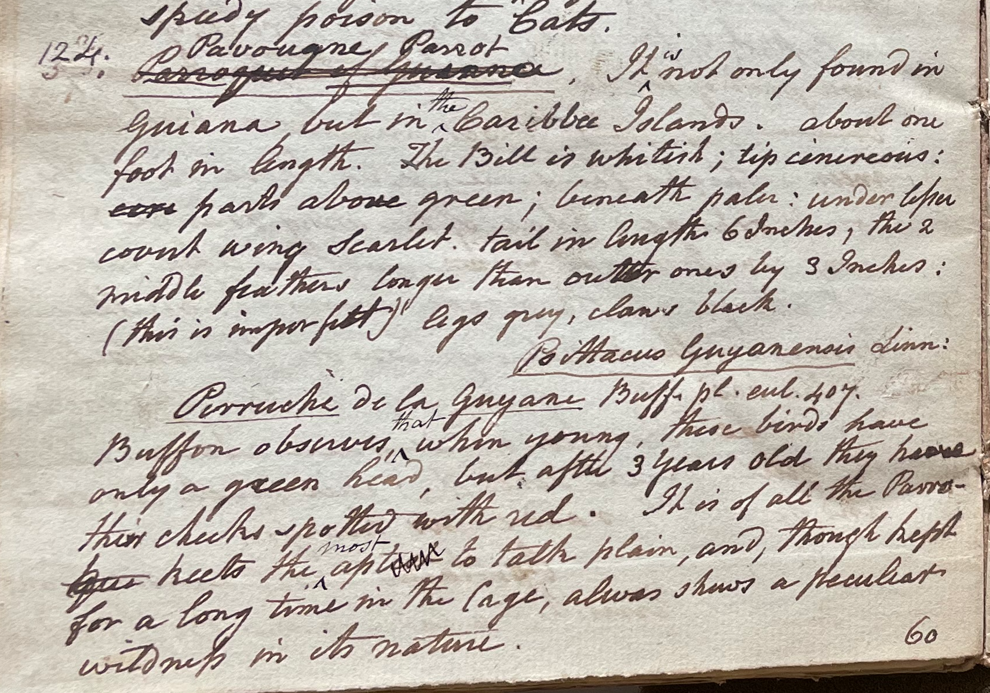 speedy poison to Cats.
Pavouane Parrot
124. Parroquet of Guiana. It is not only found in
Guiana, but in the Caribbee Islands. about one
foot in length. The Bill is whitish; tip cinereous:
parts above green; beneath paler: under lesser
covert wing Scarlet. tail in length 6 Inches, the 2
middle feathers longer than outer ones by 3 Inches:
(this is imperfect) legs grey, claws black.
Psittacus Guyanensis Linn:
Perruche de la Guyane Buff. pl. enl. 407.
Buffon observes, that when young, these birds have
only a green head, but after 3 Years old they have
their cheeks spotted with red. It is of all the Parro-
que keets the most apt to talk plain, and, though kept
for a long time in the Cage, alwas shews a peculiar
wildness in its nature.
60